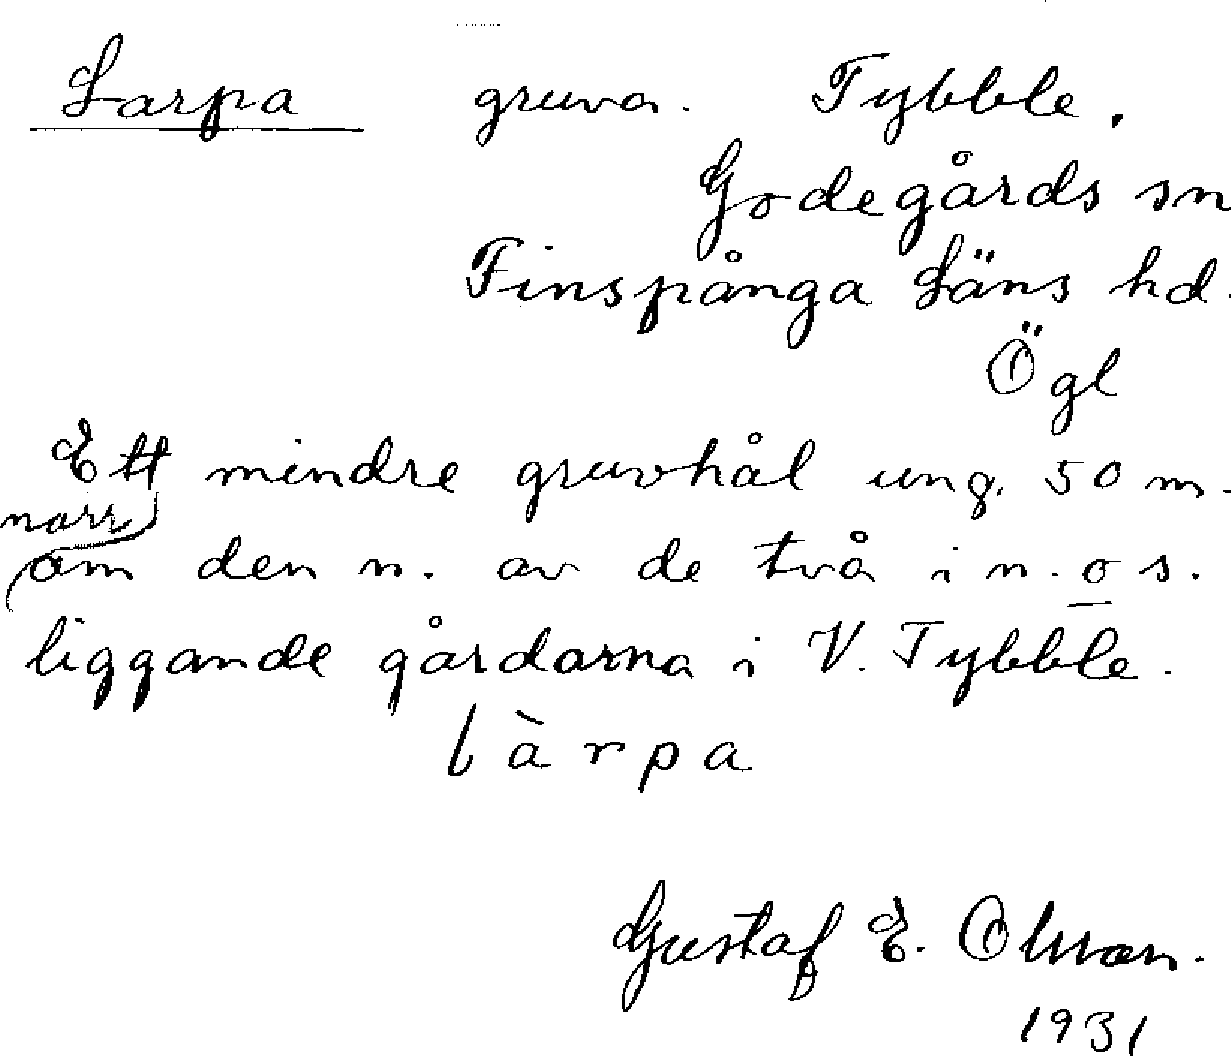 Larpa gruva. Tybble.
Godegårds sn
Finspånga Läns hd.
Ögl
Ett mindre gruvhål ung. 50 m.
norr
om den n. av de två i n. o s.
liggande gårdarna i V. Tybble.
làrpa
Gustaf E. Olsson.
1931